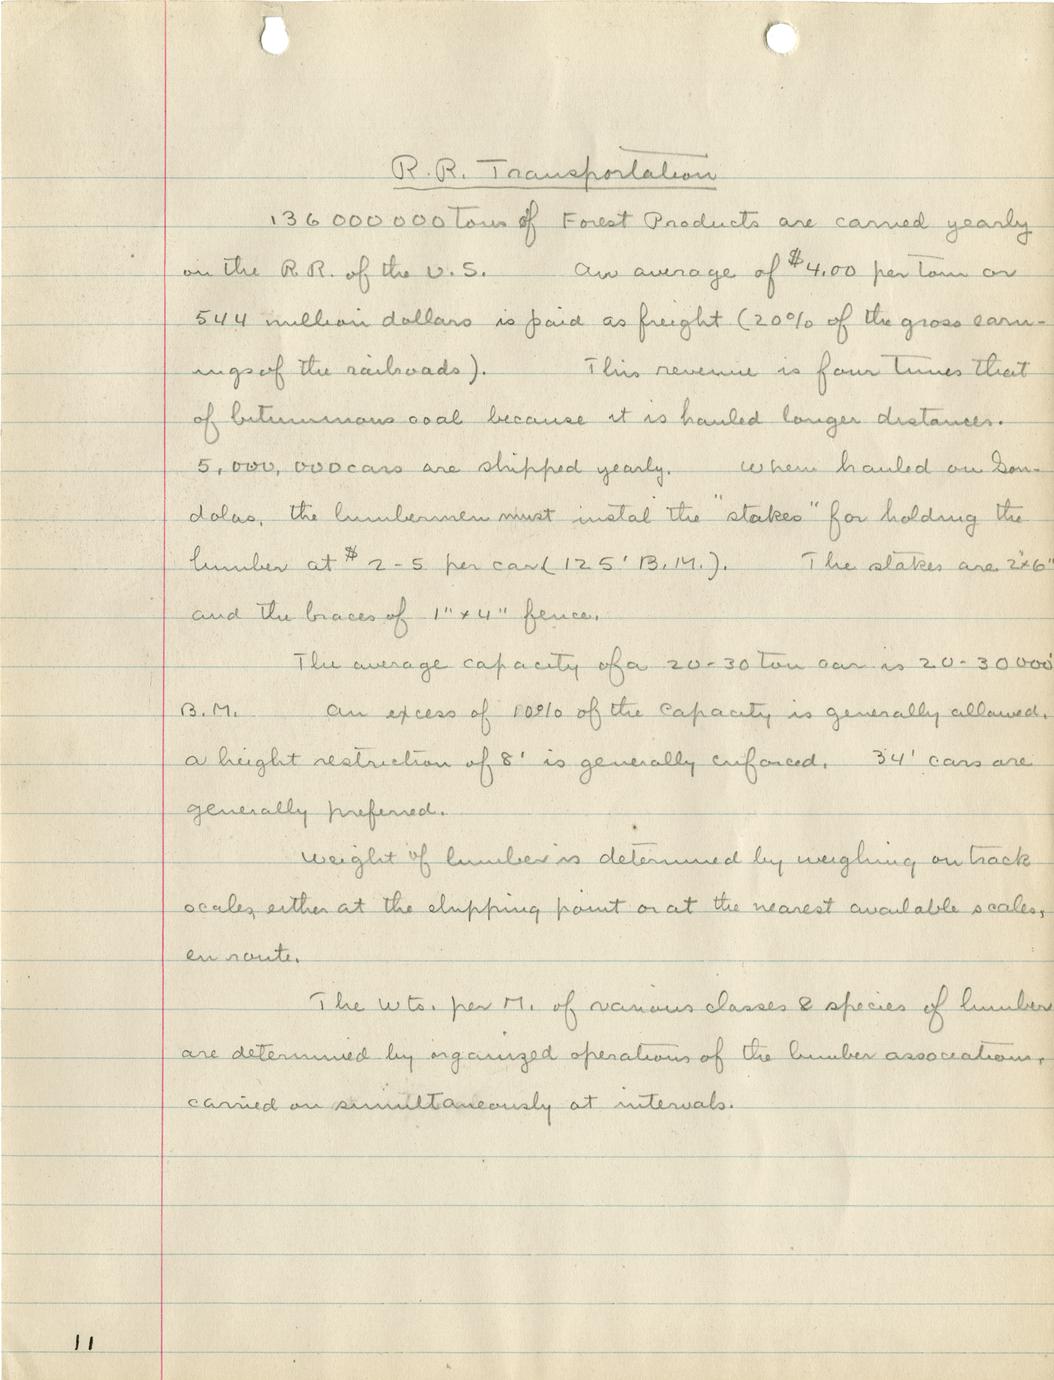 R.R. Transportation
136 000 000 tons of Forest Products are carried yearly
on the R.R. of the U.S. An average of $4.00 per ton or
544 million dollars is paid as freight (20% of the gross earn-
ings of the railroads). This revenue is four times that
of bituminous coal because it is hauled longer distances.
5,000,000 cars are shipped yearly. When hauled on Gon-
dolas, the lumbermen must instal the "stakes" for holding the
lumber at $ 2-5 per car (125' B.M.). The stakes are 2"x6"
and the braces of 1" x 4" fence.
The average capacity of a 20-30 ton car is 20-30000'
B.M. An excess of 10% of the capacity is generally allowed.
A height restriction of 8' is generally enforced. 34' cars are
generally preferred.
Weight of lumber is determined by weighing on track
scales, either at the shipping point or at the nearest available scales,
en route.
The Wts. per M. of various classes & species of lumber
are determined by organized operations of the lumber associations,
carried on simultaneously at intervals.
11